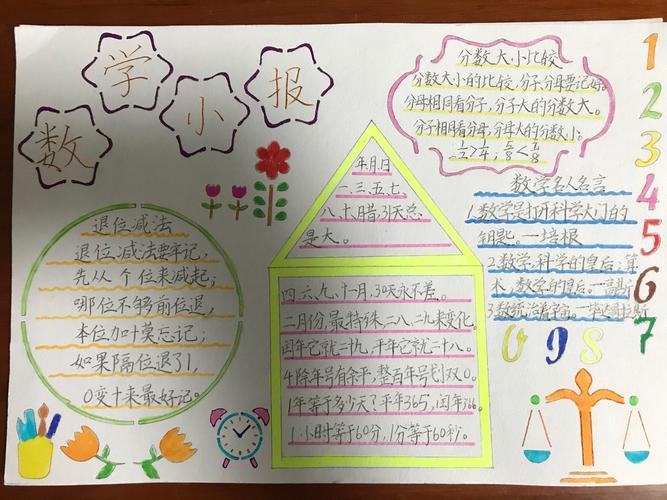 数学小报
退位减法
退位减法要牢记,
先从个位来减起;
哪位不够前位退,
本位加十莫忘记;
如果隔位退了1,
0变十来最好记。
年月日
一、三、五、七、
八、十、腊,31天总
是大。
四、六、九、十一月,30天永不差。
二月份,最特殊,二八、二九来变化,
闰年它就二十九,平年它就二十八。
4除年号有余平,整百年号划双0。
1年等于多少天?平年365,闰年366。
1小时等于60分,1分等于60秒。
分数大小比较
分数大小的比较,分子、分母要记好。
分母相同看分子,分子大的分数大。
分子相同看母,分母大的分数小。
1/2>1/4;
数学名人名言
1.数学是打开科学大门的
钥匙。一培根
2.数学,科学的皇后;算
术,数学的皇后。一高斯
3.数统治着宇宙。一毕达哥拉斯
1
2
3
4
5
6
7
0 9 8